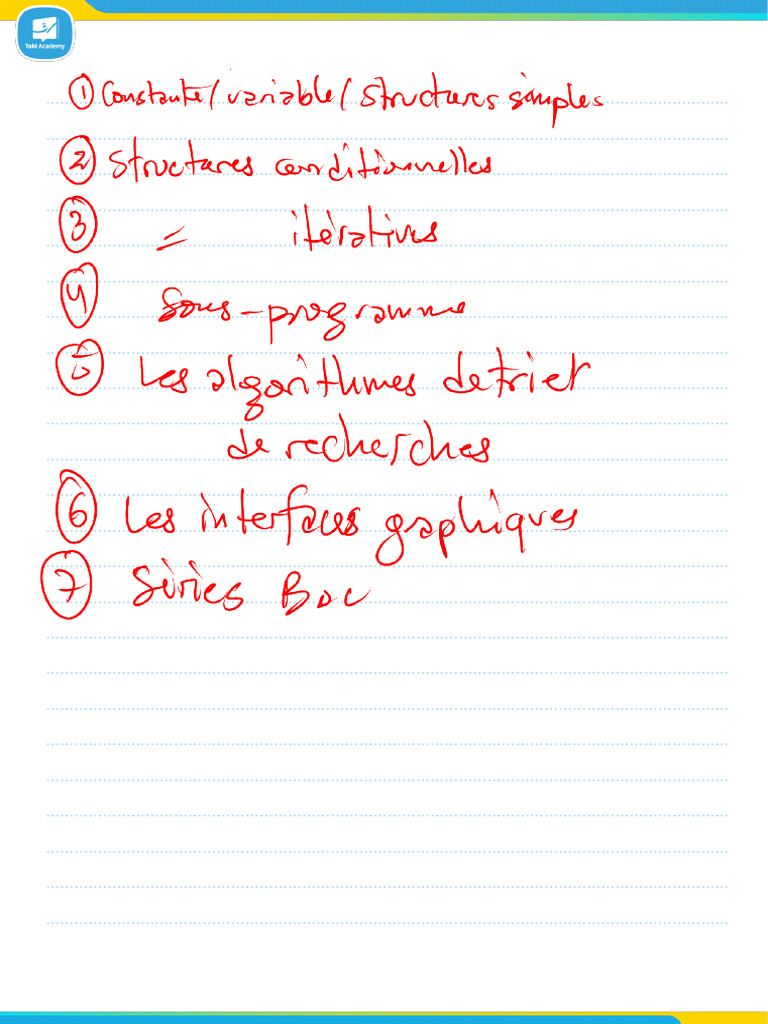 Taki Academy
① Constante / variable / Structures simples
② Structures conditionnelles
③ = itératives
④ Sous-programme
⑤ Les algorithmes de tri et
de recherches
⑥ Les interfaces graphiques
⑦ Séries Bac